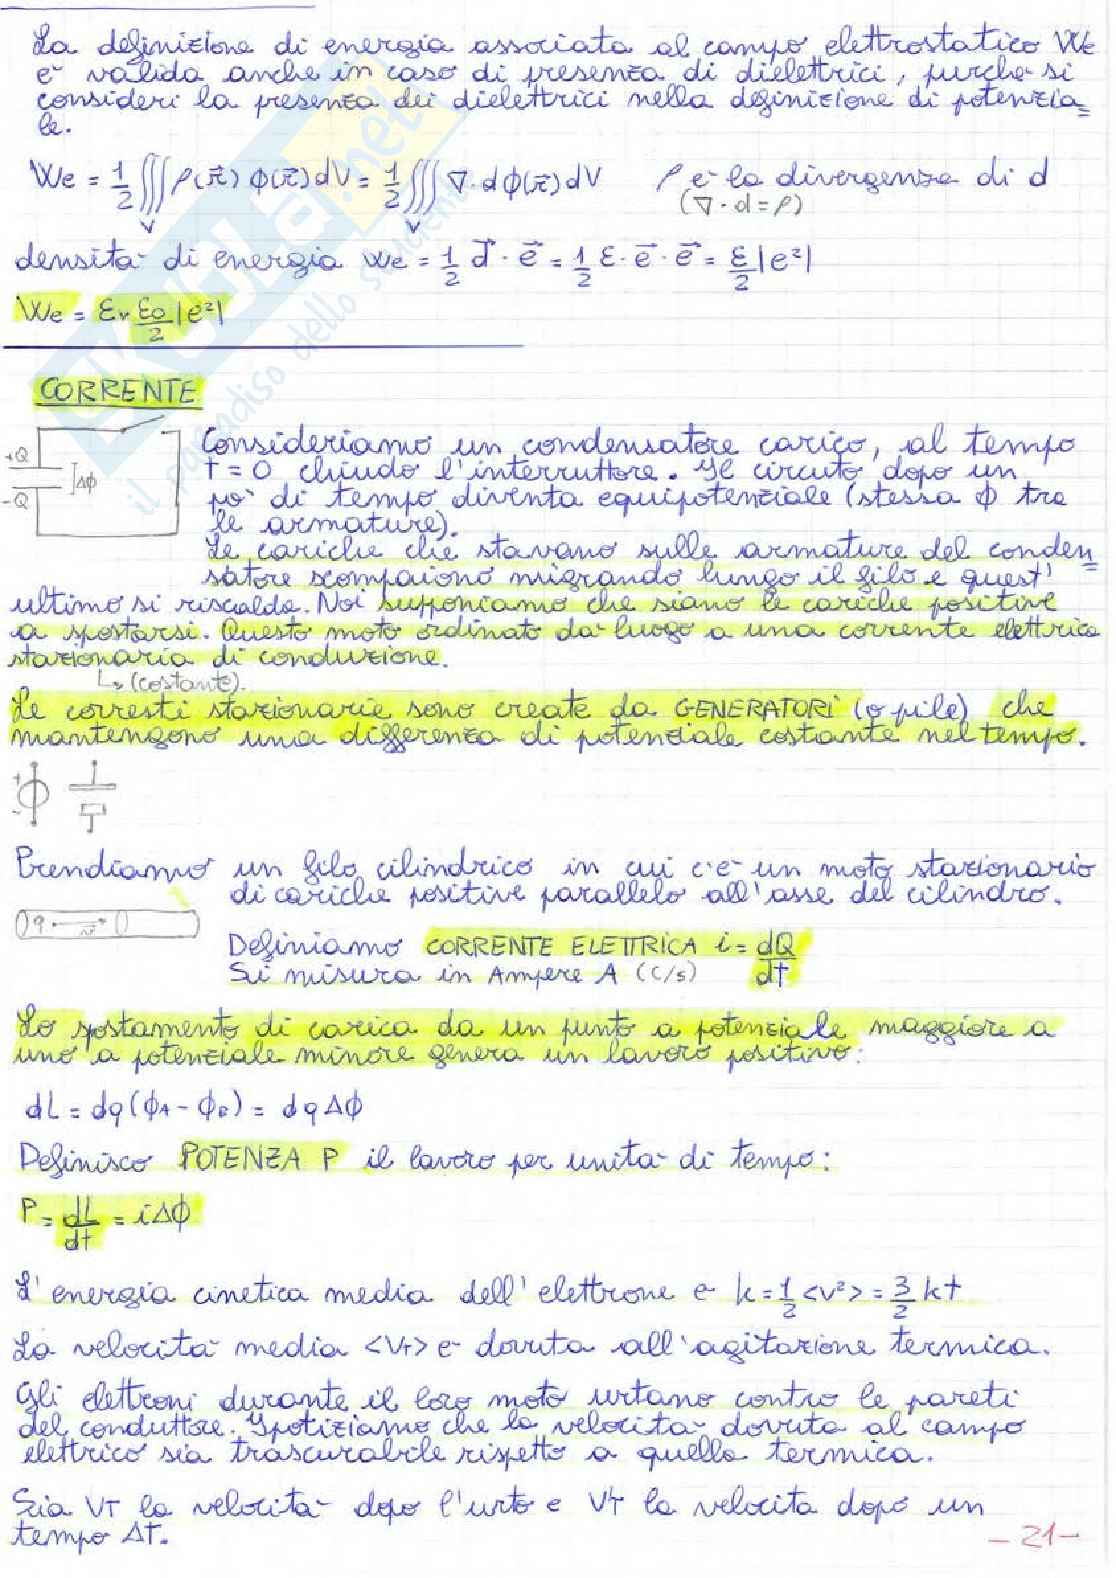 La definizione di energia associata al campo elettrostatico We
e' valida anche in caso di presenza di dielettrici, purche' si
consideri la presenza dei dielettrici nella definizione di potenzia=
le.
We = 1/2 ∭ ρ(r⃗) ϕ(r⃗) dV = 1/2 ∭ ∇·dϕ(r⃗) dV   ρ e' la divergenza di d
V V (∇·d = ρ)
densita' di energia we = 1/2 d⃗ · e⃗ = 1/2 ε · e⃗ · e⃗ = ε/2 |e²|
We = εr ε0/2 |e²|
CORRENTE
Consideriamo un condensatore carico, al tempo
t = 0 chiudo l'interruttore. Il circuto dopo un
+Q
Δϕ
-Q
po' di tempo diventa equipotenziale (stessa ϕ tra
le armature).
Le cariche che stavano sulle armature del conden=
satore scompaiono migrando lungo il filo e quest'
ultimo si riscalda. Noi supponiamo che siano le cariche positive
a spostarsi. Questo moto ordinato da' luogo a una corrente elettrica
stazionaria di conduzione.
↳ (costante).
Le corresti stazionarie sono create da GENERATORI (o pile) che
mantengono una differenza di potenziale costante nel tempo.
+
-
Prendiamo un filo cilindrico in cui c'e' un moto stazionario
di cariche positive parallelo all'asse del cilindro.
q v⃗
Definiamo CORRENTE ELETTRICA i = dQ/dt
Si misura in Ampere A (C/s)
Lo spostamento di carica da un punto a potenziale maggiore a
uno a potenziale minore genera un lavoro positivo:
dL = dq(ϕA - ϕB) = dqΔϕ
Definisco POTENZA P il lavoro per unita' di tempo:
P = dL/dt = iΔϕ
L'energia cinetica media dell'elettrone e' k = 1/2 <v²> = 3/2 kt
La velocita' media <VT> e' dovuta all'agitazione termica.
Gli elettroni durante il loro moto urtano contro le pareti
del conduttore. Ipotiziamo che la velocita' dovuta al campo
elettrico sia trascurabile rispetto a quella termica.
Sia VT la velocita' dopo l'urto e V'T la velocita dopo un
tempo ΔT.
- 21 -
SKUOLA.net
il paradiso dello studente